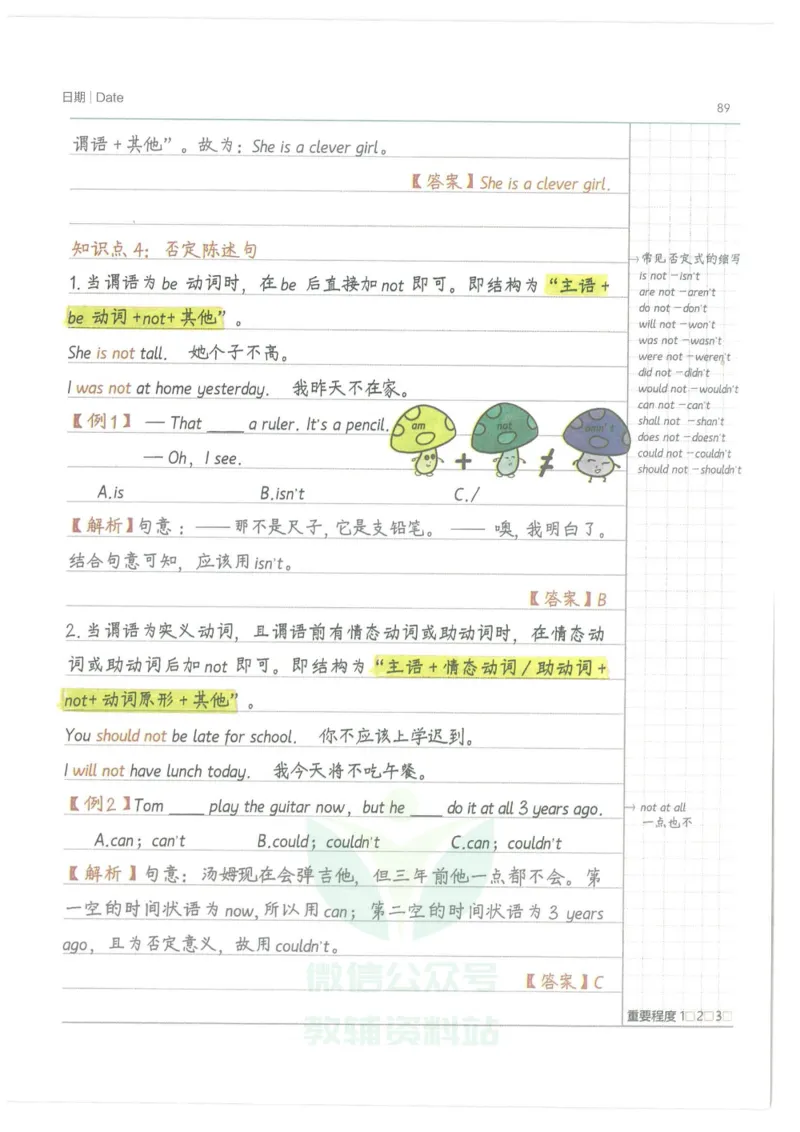 日期 | Date
89
谓语 + 其他”。故为: She is a clever girl。
【答案】She is a clever girl.
知识点 4: 否定陈述句
1. 当谓语为 be 动词时, 在 be 后直接加 not 即可。即结构为 “主语 +
be 动词 +not+ 其他”。
She is not tall. 她个子不高。
I was not at home yesterday. 我昨天不在家。
【例1】— That ____ a ruler. It's a pencil.
— Oh, I see.
am + not ≠ amn't
A.is B.isn't C./
【解析】句意: —— 那不是尺子, 它是支铅笔。 —— 噢, 我明白了。
结合句意可知, 应该用 isn't。
【答案】B
2. 当谓语为实义动词, 且谓语前有情态动词或助动词时, 在情态动
词或助动词后加 not 即可。即结构为 “主语 + 情态动词 / 助动词 +
not+ 动词原形 + 其他”。
You should not be late for school. 你不应该上学迟到。
I will not have lunch today. 我今天将不吃午餐。
【例2】Tom ____ play the guitar now, but he ____ do it at all 3 years ago.
A.can; can't B.could; couldn't C.can; couldn't
【解析】句意: 汤姆现在会弹吉他, 但三年前他一点都不会。第
一空的时间状语为 now, 所以用 can; 第二空的时间状语为 3 years
ago, 且为否定意义, 故用 couldn't。
【答案】C
→常见否定式的缩写
is not —isn't
are not —aren't
do not —don't
will not —won't
was not —wasn't
were not —weren't
did not —didn't
would not —wouldn't
can not —can't
shall not —shan't
does not —doesn't
could not —couldn't
should not —shouldn't
→ not at all
一点也不
重要程度 1□2□3□
微信公众号
教辅资料站